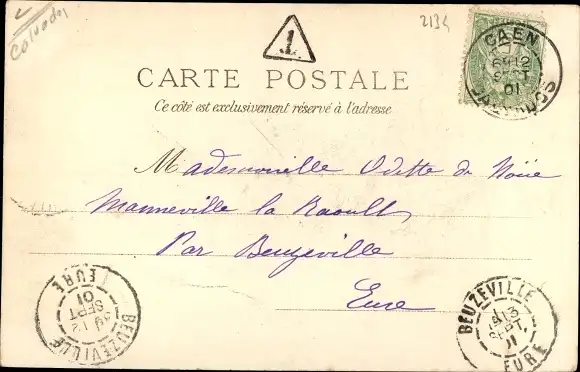 Calvados
2134
1
CARTE POSTALE
Ce côté est exclusivement réservé à l'adresse
CAEN
12
SEPT
01
CALVADOS
Mademoiselle Odette de Noüe
Manneville la Raoult
Par Beuzeville
Eure
EURE
12
SEPT
01
BEUZEVILLE
BEUZEVILLE
13
SEPT.
EURE